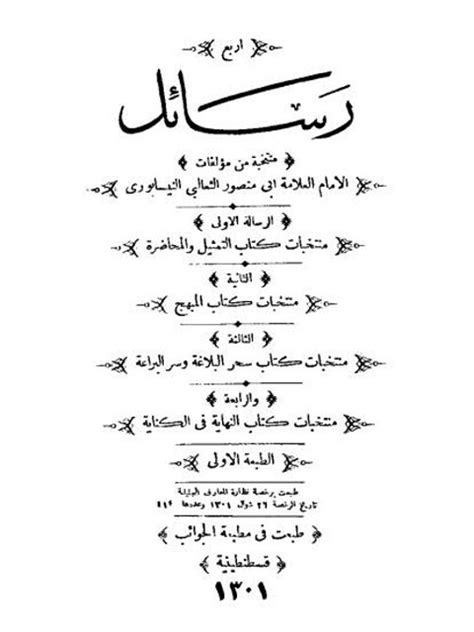 اربع
رسائل
منتخبة من مؤلفات
الامام العلامة ابى منصور الثعالبي النيسابورى
الرسالة الاولى
منتخبات كتاب التمثيل والمحاضرة
الثانية
منتخبات كتاب المبهج
الثالثة
منتخبات كتاب سحر البلاغة وسر البراعة
والرابعة
منتخبات كتاب النهاية فى الكناية
الطبعة الاولى
طبعت برخصة نظارة المعارف الجليلة
تاريخ الرخصة ٢٦ شوال ١٣٠١ وعددها
طبعت فى مطبعة الجوائب
قسطنطينية
١٣٠١